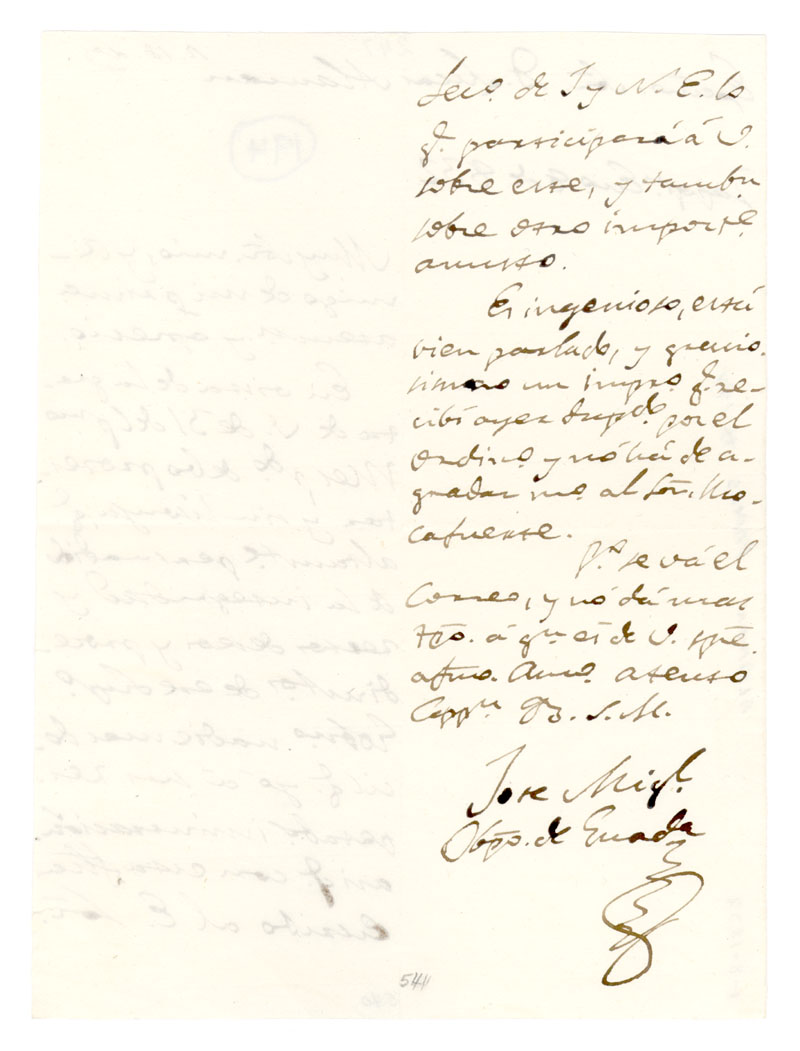 Seco. de J y N. E. lo
q. participará á V.
sobre este, y tambn
sobre otro importe.
asunto.
Es ingenioso, está
vien parlado, y gracio-
simo un impro. q. re-
cibí ayer por el
ordino. y nó há de a-
gradar mo. al Sor. Ro-
cafuerte.
Pa. se vá el
Correo, y nó dá mas
tpo. á qn es de V. spre.
afmo. Amo. atento
Cappn B. S. M.
Jose Migl.
Obpo. de
541